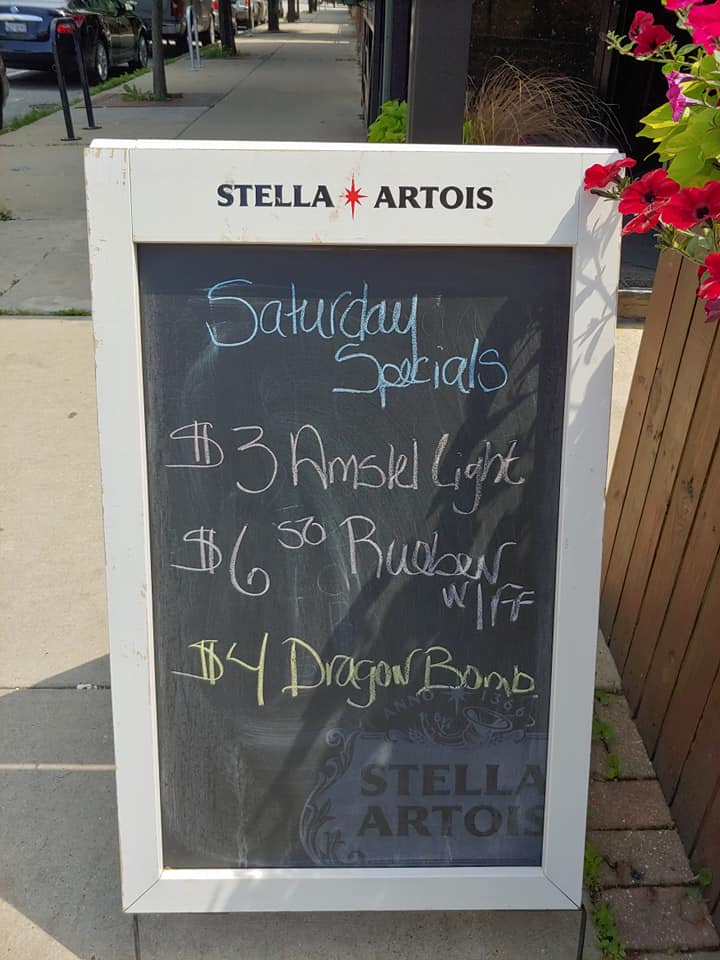 STELLA ARTOIS
Saturday
Specials
$3 Amstel Light
$6 50 Rueben
W/FF
$4 Dragon Bomb
ANNO 1366
STELLA
ARTOIS